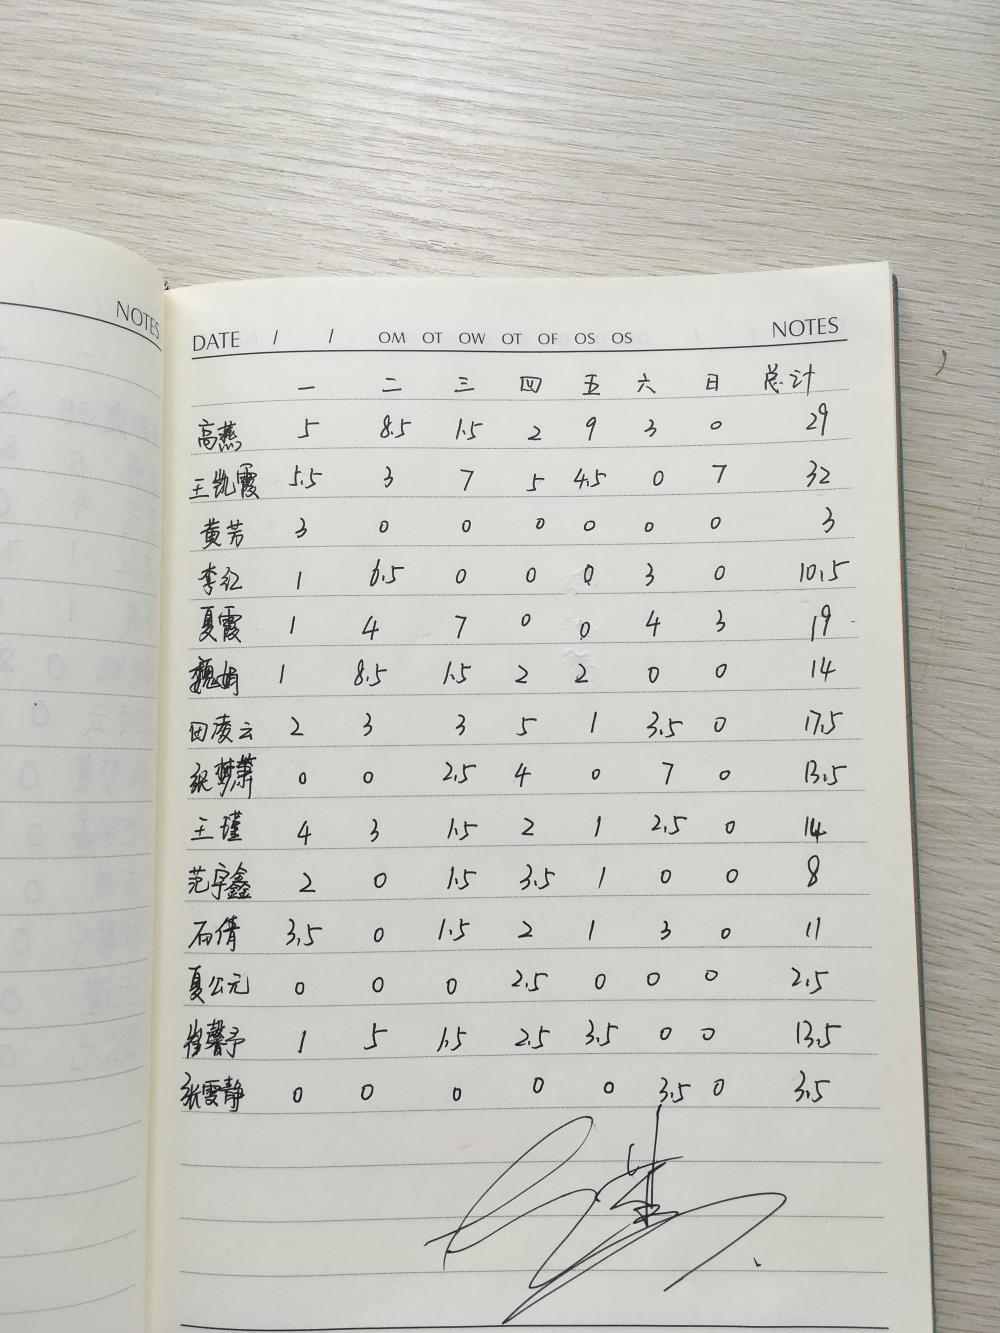 NOTES
DATE / / OM OT OW OT OF OS OS NOTES
一 二 三 四 五 六 日 总计
高燕 5 8.5 1.5 2 9 3 0 29
王凯霞 5.5 3 7 5 4.5 0 7 32
黄芳 3 0 0 0 0 0 0 3
李红 1 6.5 0 0 0 3 0 10.5
夏霞 1 4 7 0 0 4 3 19
魏娟 1 8.5 1.5 2 2 0 0 14
田凌云 2 3 3 5 1 3.5 0 17.5
张梦萧 0 0 2.5 4 0 7 0 13.5
王瑾 4 3 1.5 2 1 2.5 0 14
范宇鑫 2 0 1.5 3.5 1 0 0 8
石倩 3.5 0 1.5 2 1 3 0 11
夏公元 0 0 0 2.5 0 0 0 2.5
崔馨予 1 5 1.5 2.5 3.5 0 0 13.5
张雯静 0 0 0 0 0 3.5 0 3.5